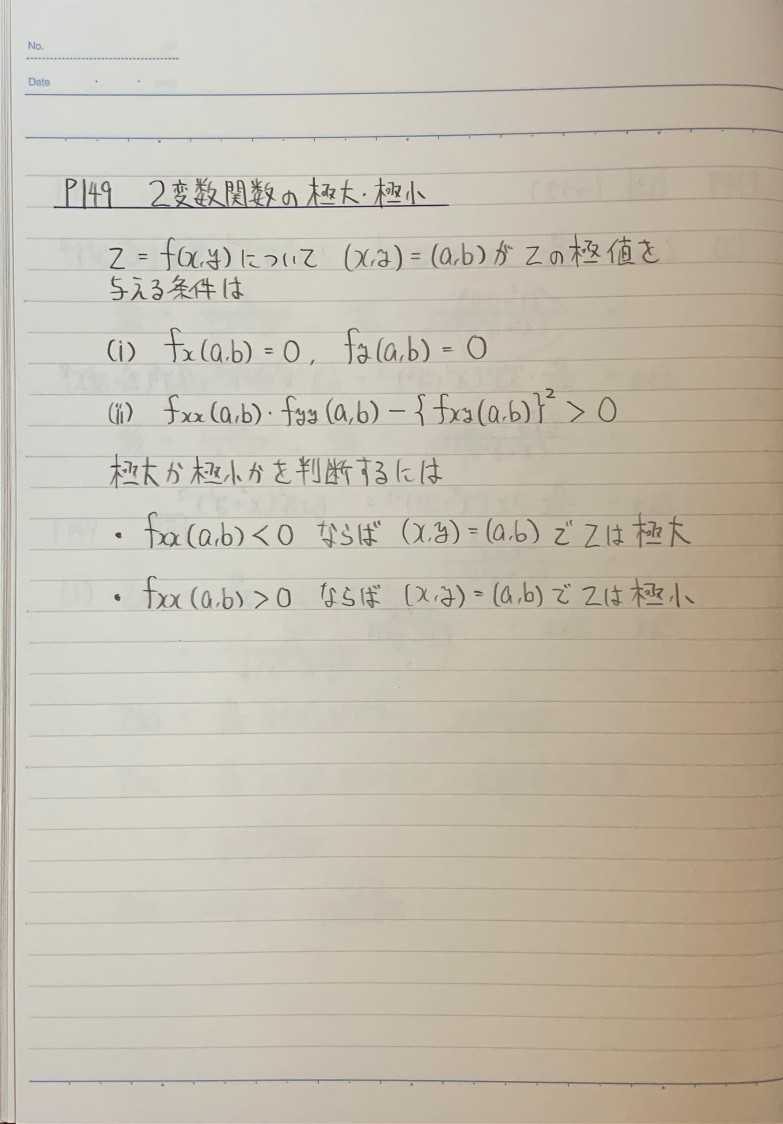 No.
Date
P149 2変数関数の極大・極小
Z = f(x,y)について (x,y) = (a,b)がZの極値を
与える条件は
(i) fx(a,b) = 0, fy(a,b) = 0
(ii) fxx(a,b)・fyy(a,b) - {fxy(a,b)}² > 0
極大か極小かを判断するには
・ fxx(a,b) < 0 ならば (x,y) = (a,b) で Zは極大
・ fxx(a,b) > 0 ならば (x,y) = (a,b) で Zは極小